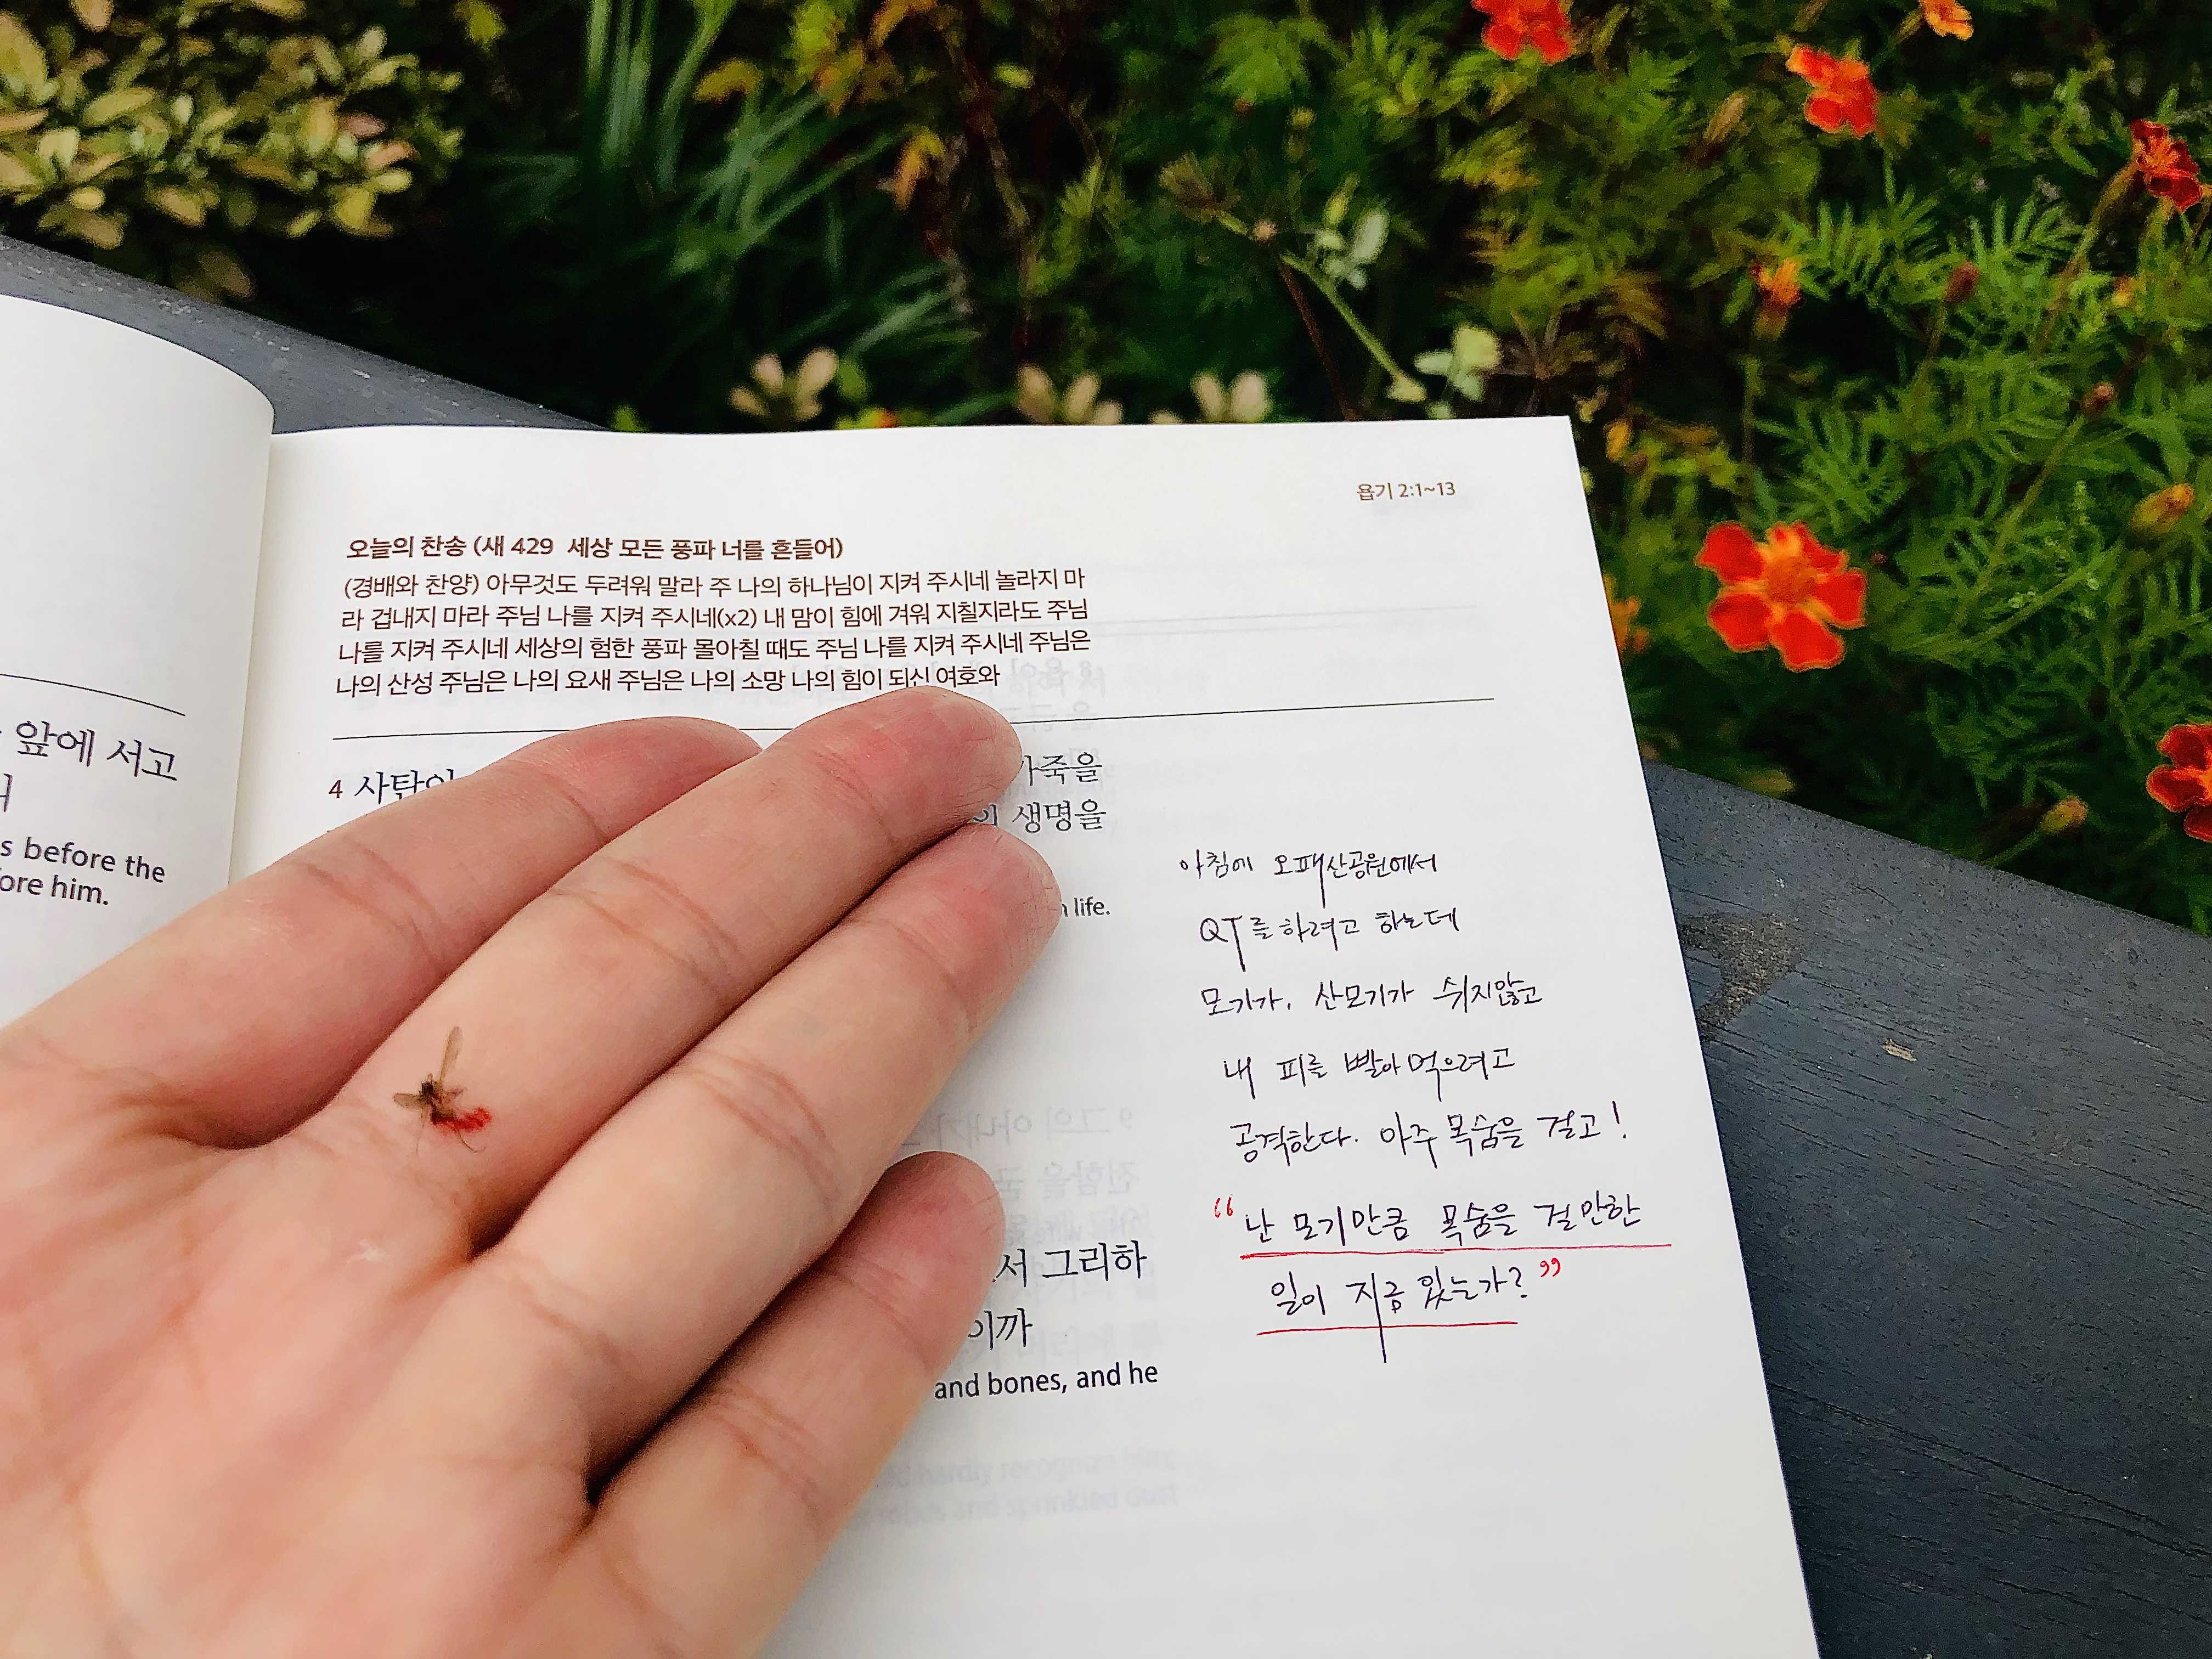 앞에 서고
s before the
ore him.
욥기 2:1~13
오늘의 찬송 (새 429 세상 모든 풍파 너를 흔들어)
(경배와 찬양) 아무것도 두려워 말라 주 나의 하나님이 지켜 주시네 놀라지 마
라 겁내지 마라 주님 나를 지켜 주시네(x2) 내 맘이 힘에 겨워 지칠지라도 주님
나를 지켜 주시네 세상의 험한 풍파 몰아칠 때도 주님 나를 지켜 주시네 주님은
나의 산성 주님은 나의 요새 주님은 나의 소망 나의 힘이 되신 여호와
4 사탄이 가죽을
의 생명을
life.
서 그리하
이까
and bones, and he
아침에 오패산공원에서
QT를 하려고 하는데
모기가, 산모기가 쉬지않고
내 피를 빨아먹으려고
공격한다. 아주 목숨을 걸고!
"난 모기만큼 목숨을 걸만한
일이 지금 있는가?"